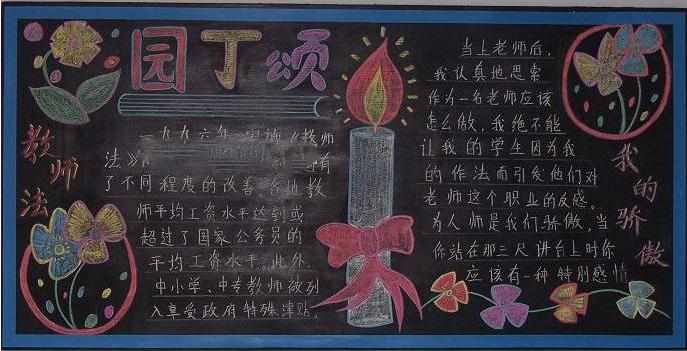 园丁颂
教师法
一九九六年 实施《教师
法》 有
了不同程度的改善 各地教
师平均工资水平达到或
超过了国家公务员的
平均工资水平。此外
中小学、中专教师被列
入享受政府特殊津贴。
当上老师后，
我认真地思索
作为一名老师应该
怎么做，我绝不能
让我的学生因为我
的作法而引发他们对
老师这个职业的反感。
为人师是我们骄傲，当
你站在那三尺讲台上时你
应该有一种特别感情
我的骄傲